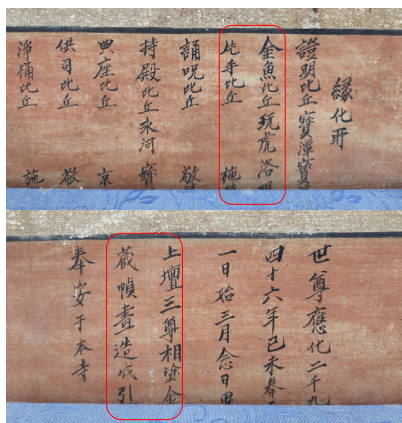 緣化所
證明比丘寶潭寶
金魚比丘玩虎洛
片手比丘
誦呪比丘
持殿比丘永河 寶
典座比丘 京
供司比丘 敬
淨桶比丘 施
世尊應化二千九
四十六年己未春
一日始三月念日
上壇三尊相塗金
藏幀畫造成引
奉安于本寺